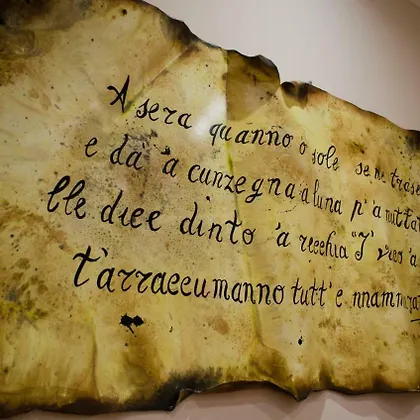 A sera quanno o sole se ne trase
e dà 'a cunzegna a luna p' a nuttat
lle dice dinto 'a recchia "I' vaco a
t'arraccumanno tutt' e nnammurat